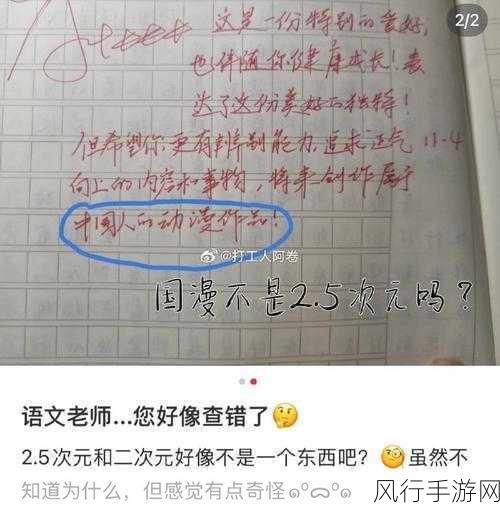 2/2
这是一份特别的爱好,
也伴随你健康成长!表
达了这份美好与独特!
但希望你更有辨别能力,追求正气 11-4
向上的内容和事物,将来创作属于
中国人的动漫作品!
@打工人阿卷
国漫不是2.5次元吗?
语文老师...您好像查错了🤔
2.5次元和二次元好像不是一个东西吧?🧐虽然不
知道为什么,但感觉有点奇怪
风行手游网